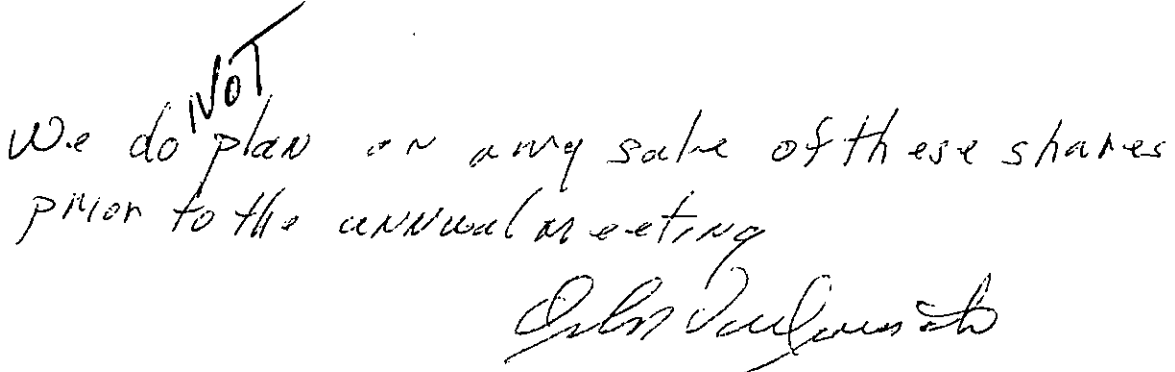 We do NOT plan on any sale of these shares
prior to the annual meeting